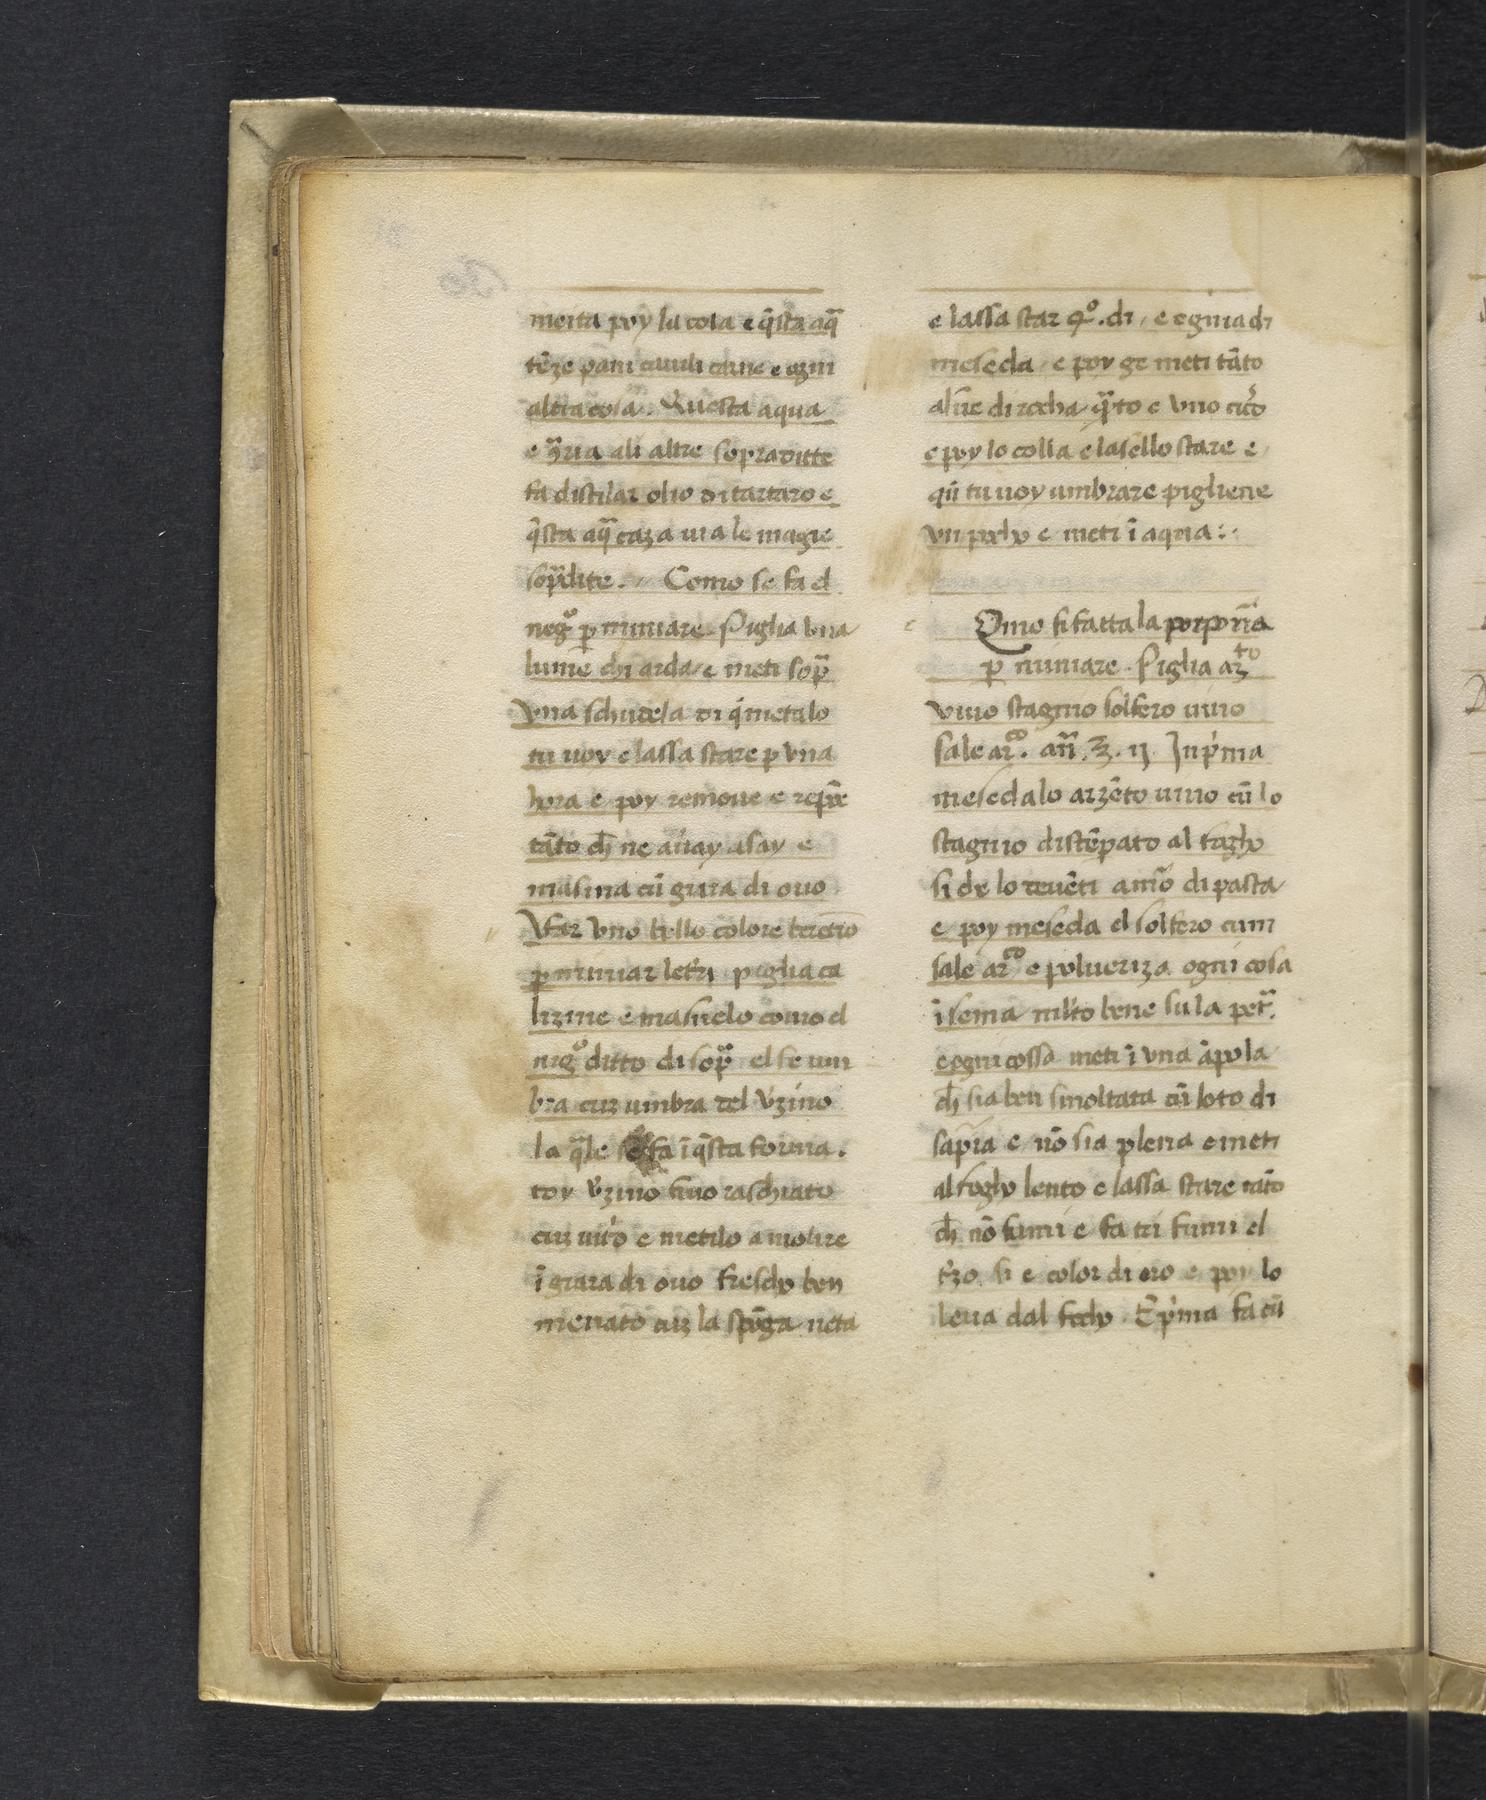 meita poy la cosa e q̃sta aq̃
tẽze pani cauili carne e ogni
altra cosa. Questa aqua
e ↄ̃ria ali altre sopraditte
fa distilar olio di tartaro e
q̃sta aq̃ caza uia le magie
sop̃dite. Como se fa el
neg̊ ꝑ miniare. Piglia vna
lume chi arda e meti sop̃
vna schudela di q̃ metalo
tu uoy e lassa stare ꝑ vna
hora e poy remoue e
tãto ch̃ ne auay asay e
masina cũ giara di ouo
A far vno bello colore beretino
ꝑ miniar piglia ca
lizine e masnelo como el
nig̊ ditto di sop̃ el se um
bra cuz umbra del v̓zino
la q̃le se fa ĩ q̃sta forma.
toy v̓zino fino raschiato
cuz e metilo a molire
ĩ giara di ouo frescho ben
menato cuz la spõga neta
e lassa star q°. di, e ogni a di
meseda e poy ge meti tãto
alũe di rocha q̃to e vno
e poy lo colla e lasello stare e
qũ tu uoy umbrare pigliene
vn pocho e meti ĩ aqua:
Como si fatta la porporĩa
ꝑ miniare. Piglia arᵗᵒ
viuo stagnio solfero uiuo
sale arᶜᵒ. añ. ℥. ij. In p̓ma
meseda lo arzẽto uiuo cũ lo
stagnio distẽpato al fogho
si che lo deuẽti a mõ di pasta
e poy meseda el solfero cum
sale arᶜᵒ e polueriza ogni cosa
ĩsema molto bene su la pet̃.
e ogni cossa meti ĩ vna ãpola
ch̃ sia ben smoltata cũ loto di
sapĩa e nõ sia plena e meti
al fogho lento e lassa stare tãto
ch̃ nõ fumi e fa tri fumi el
t̓zo si e color di oro e poy lo
leua dal focho. E p̓ma fa cũ